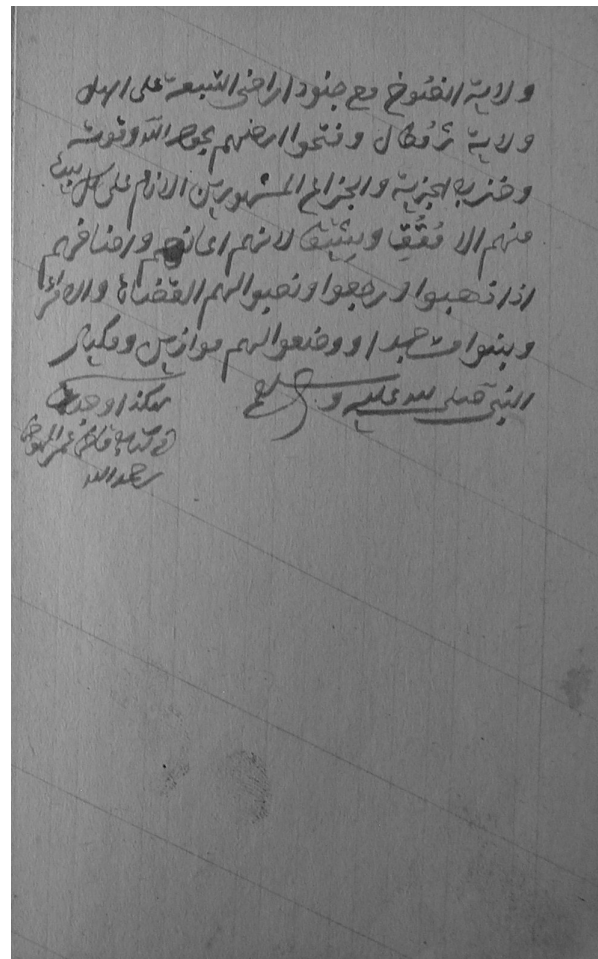 ولاية الفتوخ مع جنود اراضى التبعة على اهل
ولاية زُمُكال وفتحوا ارضهم بحول الله وقوته
وضرب الجزية والخراج المشهورين الازم على كل بيت
منهم الا مُقُقِ وبِثِيقَ لانهم اعانوهم واضافوهم
اذا ذهبوا و رجعوا ونصبوا لهم القضاة والامراء
وبنوا مسجدا ووضعوا لهم موازين ومكيال
النبى صلى الله عليه و سلم
هكذا وجدت
فى كتاب
رحمه الله